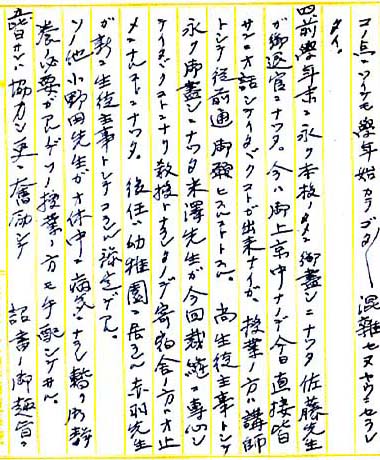 コノ点ニツイテモ學年始カラゴタ〱混雜セヌヤウニセラレ
タイ。
四、前學年末ニ永ク本校ノタメ御盡シニナツタ佐藤先生
ガ御退官ニナツタ。今ハ御上京中ナノデ今日直接皆
サンニオ話シテイタダクコトガ出来ナイガ、授業ノ方ハ講師
トシテ従前通御願ヒスルコトトスル。尚生徒主事トシテ
永ク御盡シニナツタ米澤先生ガ今回裁縫ニ専心シ
テイタダクコトニナリ教授トナラレタノデ寄宿舎ノ方ハオ止
メニナルコトニナツタ。後任ハ幼稚園ニ居ラレル赤羽先生
ガ新ニ生徒主事トシテコラレル豫定デアル。
ソノ他小野田先生ガオ休中ニ病気ニナラレ暫ク御静
養ノ必要ガアルサウデ授業ノ方モ手配シテヰル。
五、皆サンハ協力シ更ニ奮励シテ 詔書ノ御趣旨ニ